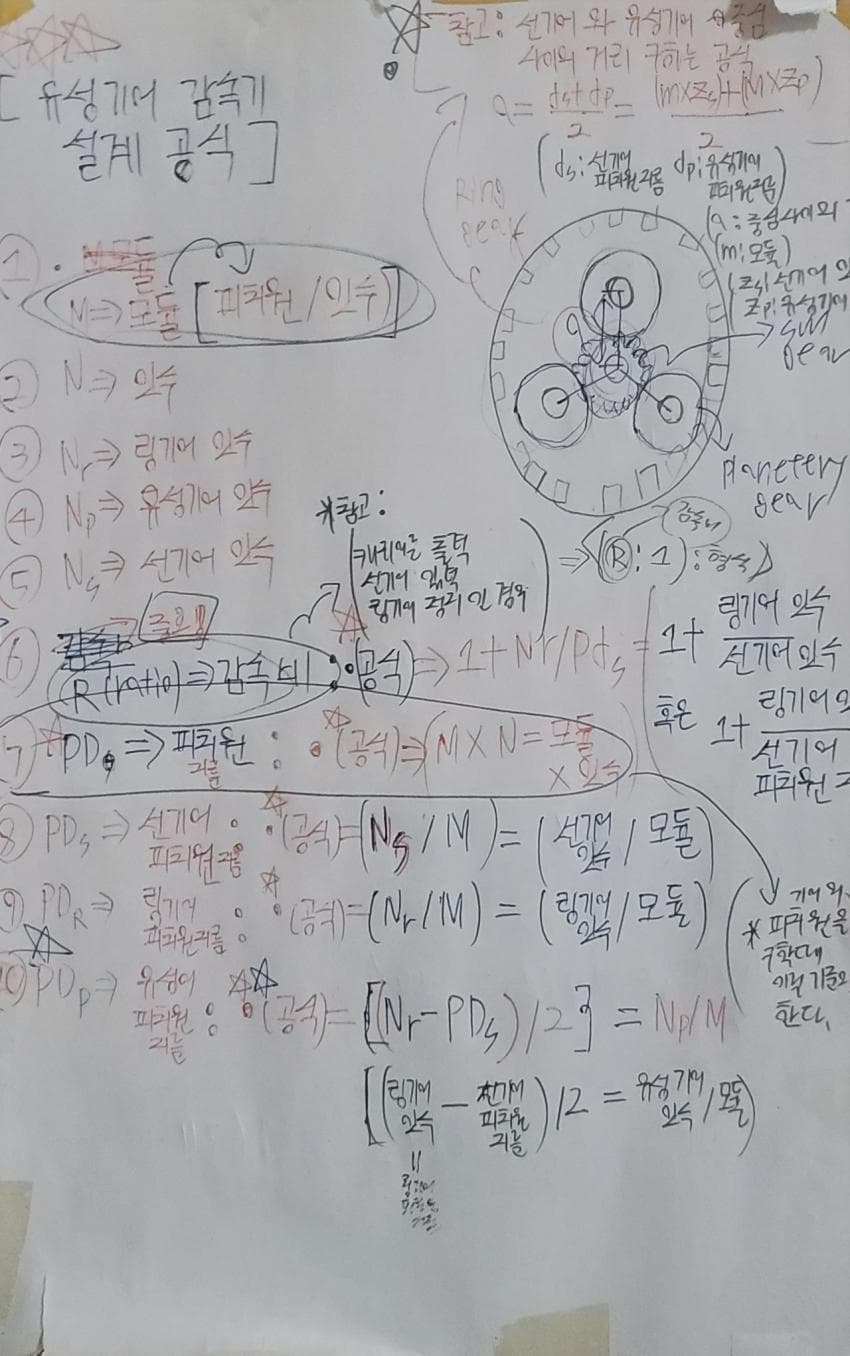 참고: 선기어 와 유성기어 중심
사이의 거리 구하는 공식
a = ds+dp/2 = (m×Zs)+(M×Zp)/2
(ds: 선기어 피치원지름 dp: 유성기어 피치원지름)
(a: 중심사이의
(m: 모듈)
(Zs: 선기어
Zp: 유성기어
[ 유성기어 감속기
설계 공식 ]
Ring
gear
a
sun
gear
planetery
gear
①
M ⇒ 모듈 [피치원/잇수]
② N ⇒ 잇수
③ Nr ⇒ 링기어 잇수
④ Np ⇒ 유성기어 잇수
⑤ Ns ⇒ 선기어 잇수
*참고:
캐리어를 출력
선기어 입력
링기어 정지 인 경우
⇒ (R:1): 형식
감속비
중요!!
⑥ R(ratio) ⇒ 감속비 : (공식) ⇒ 1+Nr/Pds = 1+ 링기어 잇수/선기어 잇수
혹은 1+ 링기어/선기어 피치원
⑦ PD ⇒ 피치원 지름 : (공식) ⇒ (M × N = 모듈 × 잇수)
⑧ PDs ⇒ 선기어 피치원지름 : (공식) = (Ns / M) = (선기어 잇수 / 모듈)
⑨ PDR ⇒ 링기어 피치원지름 : (공식) = (Nr/M) = (링기어 잇수 / 모듈)
*피치원을
한다.
⑩ PDp ⇒ 유성어 피치원 지름 : (공식) = [(Nr-PDs)/2] = Np/M
[(링기어 잇수 - 선기어 피치원 지름)/2 = 유성기어 잇수/모듈)